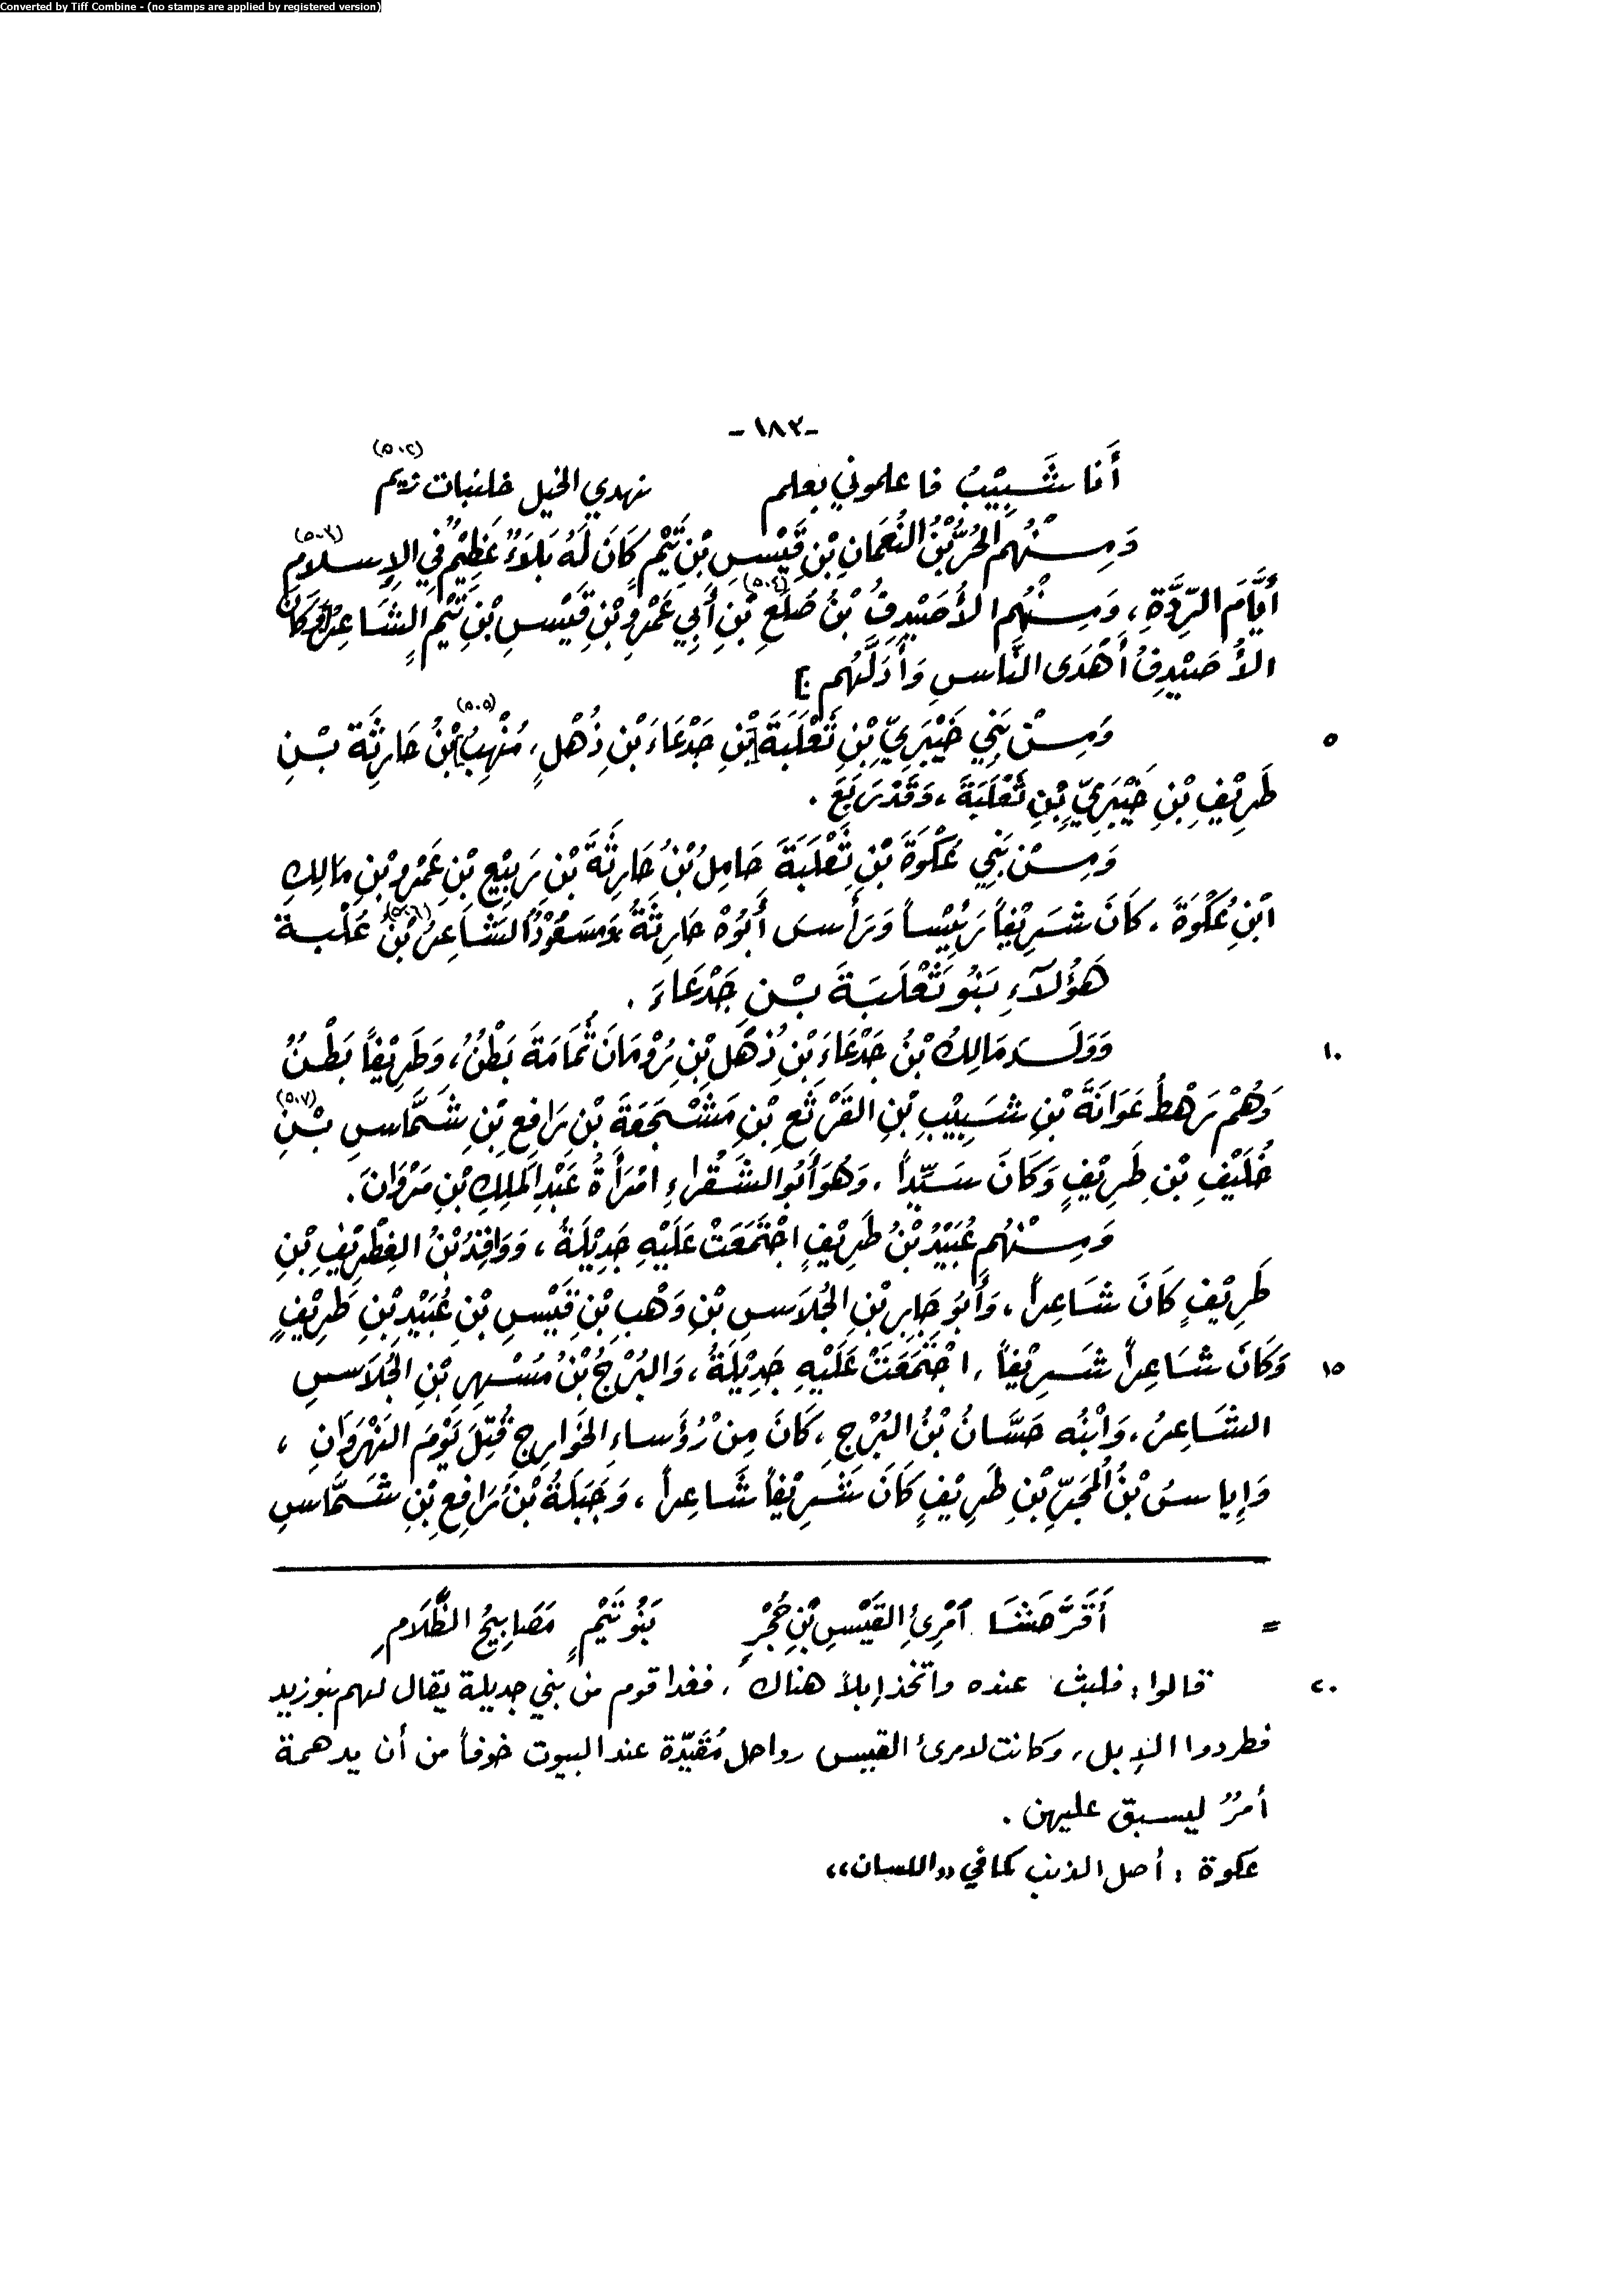 Converted by Tiff Combine - (no stamps are applied by registered version)
-١٨٢-
أَنا شَبِيْبٌ فاعلموني بعلم نهدي الخيل خلنبات (٥٠٢)
وَمِنْهُم الحُرُّ بْنُ النُّعْمَانِ بْنِ قَيْسِ بْنِ تَيْمٍ كَانَ لَهُ بَلَاءٌ عَظِيْمٌ فِي الإِسلامِ (٥٠٣)
أَيَّامَ الرِّدَّةِ، وَمِنْهُم الأُصَيْدِفُ بْنُ صُلَعِ (٥٠٤) بْنِ أَبِي عَمْرِو بْنِ قَيْسِ بْنِ تَيْمٍ الشَّاعِرُ وَكَانَ
الأُصَيْدِفُ أَهْدَى النَّاسِ وَأَدَلَّهُم]
٥ وَمِنْ بَنِي خَيْبَرِيِّ بْنِ ثَعْلَبَةَ [بْنِ جَدْعَاءَ بْنِ ذُهْلٍ، مُنْهِبُ] (٥٠٥) بْنُ حَارِثَةَ بْنِ
طَرِيْفِ بْنِ خَيْبَرِيِّ بْنِ ثَعْلَبَةَ، وَقَدْ رَبَعَ.
وَمِنْ بَنِي عُكْوَةَ بْنِ ثَعْلَبَةَ حَامِلُ بْنُ حَارِثَةَ بْنِ رَبِيْعِ بْنِ عَمْرِو بْنِ مَالِكِ
ابْنِ عُكْوَةَ، كَانَ شَرِيْفاً رَئِيْساً وَرَأَسَ أَبُوْهُ حَارِثَةُ وَمَسْعُوْدٌ الشَّاعِرُ (٥٠٦) بْنُ عُلْبة
هَؤُلَآءِ بَنُو ثَعْلَبَةَ بْنِ جَدْعَاءَ.
١٠ وَوَلَدَ مَالِكُ بْنُ جَدْعَاءَ بْنِ ذُهْلِ بْنِ رُوْمَانَ ثُمَامَةَ بَطْنٌ، وَطَرِيْفاً بَطْنٌ
وَهُمْ رَهْطُ عَوَانَةَ بْنِ شَبِيْبِ بْنِ القَرْثَعِ بْنِ مَشْجَعَةَ بْنِ رَافِعِ بْنِ شَمَّاسِ بْنِ (٥٠٧)
خُلَيْفِ بْنِ طَرِيْفٍ وَكَانَ سَيِّداً، وَهُوَ أَبُو الشَّقْراءِ امْرَأَةُ عَبْدِ المَلِكِ بْنِ مَرْوَانَ.
وَمِنْهُم عُبَيْدُ بْنُ طَرِيْفٍ اجْتَمَعَتْ عَلَيْهِ جَدِيْلَةُ، وَوَافِدُ بْنُ الغِطْرِيْفِ بْنِ
طَرِيْفٍ كَانَ شَاعِراً، وَأَبُو جَابِرِ بْنِ الجُلَاسِ بْنِ وَهْبِ بْنِ قَيْسِ بْنِ عُبَيْدِ بْنِ طَرِيْفٍ
١٥ وَكَانَ شَاعِراً شَرِيْفاً، اجْتَمَعَتْ عَلَيْهِ جَدِيْلَةُ، وَالبُرْجُ بْنُ مُسْهِرِ بْنِ الجُلَاسِ
الشَّاعِرُ، وَابْنُه حَسَّانُ بْنُ البُرْجِ، كَانَ مِنْ رُؤَساءِ الخَوَارِجِ قُتِلَ يَوْمَ النَّهْرَوَانِ،
وَإِياسُ بْنُ المُجَبِّرِ بْنِ طَرِيْفٍ كَانَ شَرِيْفاً شَاعِراً، وَجَبَلَةُ بْنُ رَافِعِ بْنِ شَمَّاسِ
= أَقَرَّ حَشَا امْرِئِ القَيْسِ بْنِ حُجْرٍ بَنُو تَيْمٍ مَصَابِيْحُ الظَّلَامِ
٢٠ قالوا: فلبث عنده واتخذ إبلاً هناك، فغدا قوم من بني جديلة يقال لهم بنوزيد
فطردوا الإبل، وكانت لامرئ القيس رواحل مُقَيَّدة عند البيوت خوفاً من أن يدهمة
أمرٌ ليسبق عليهن.
عكوة: أصل الذنب كما في «اللسان»